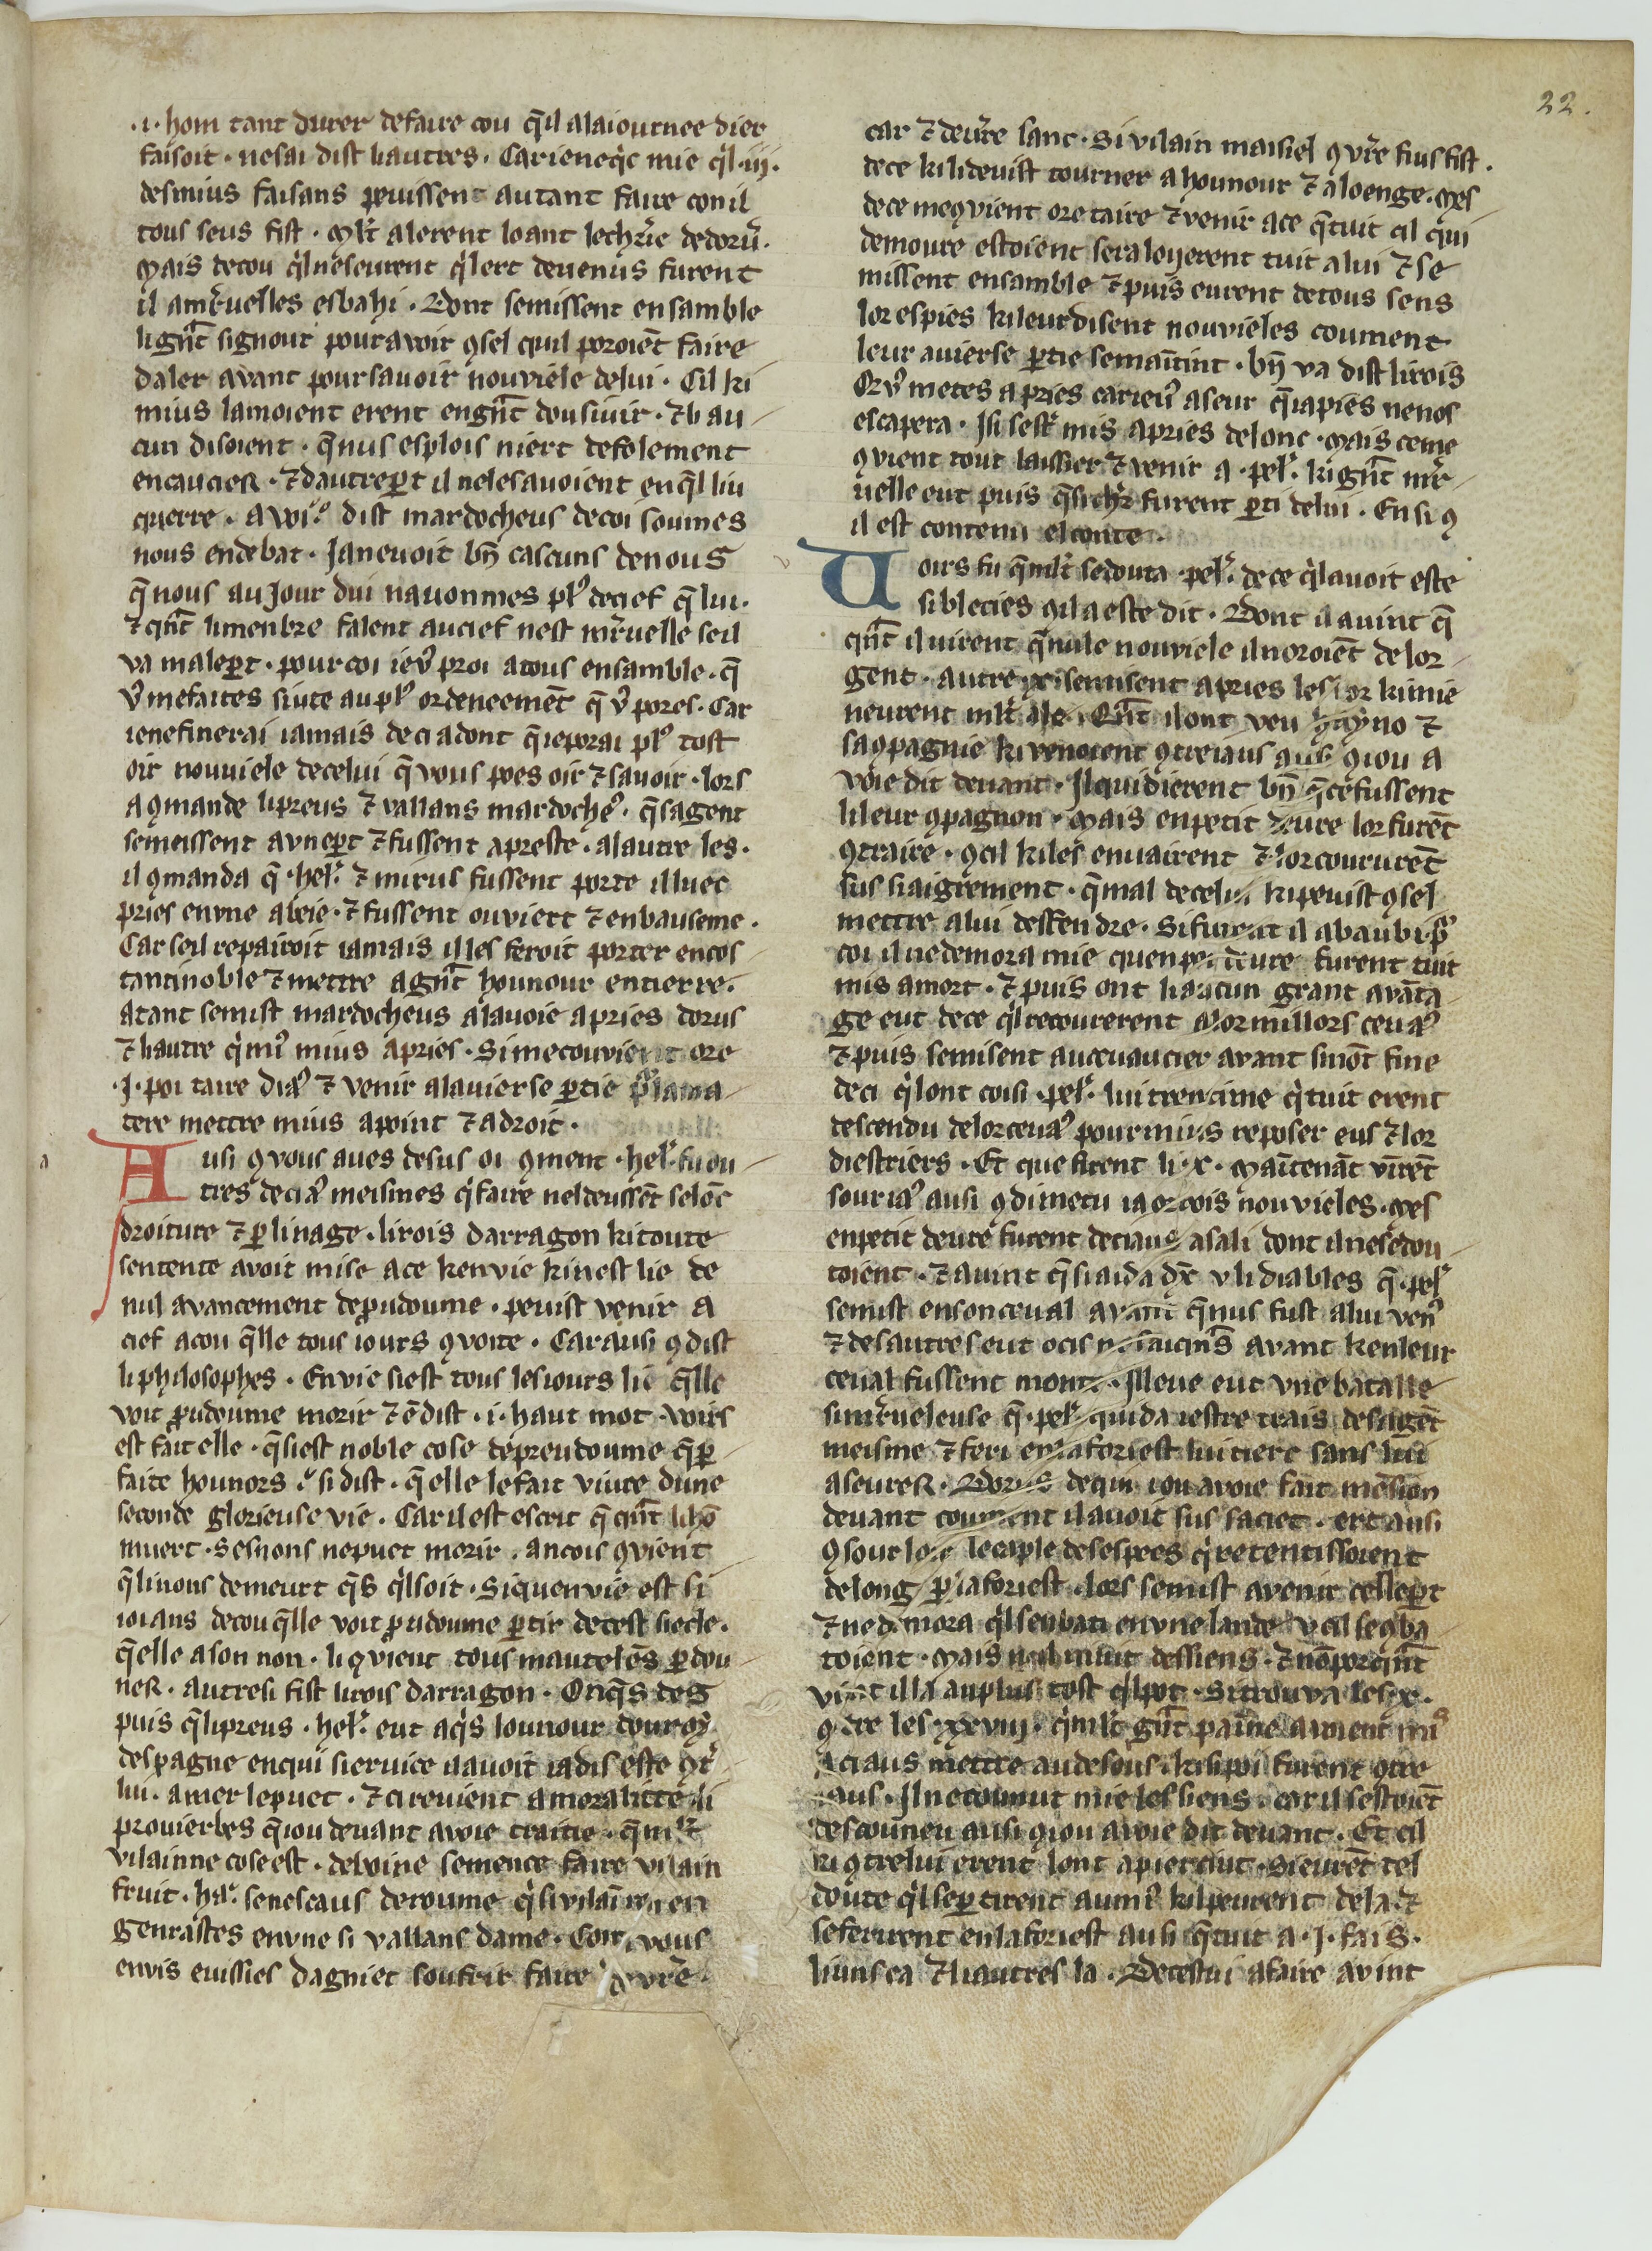 22.
.i. hom tant durer de faire cou q̄ il a la iournee dier
faisoit . ne sai dist li autres . Car ie ne q̓c mie q̓l .iij.
des mius faisans peuissent autant faire con il
tous seus fist . ml̓t alerent loant le ch̓rie de doru̓ .
Mais de cou q̓l ne seurent q̓l ert deuenus furent
il a mr̓uelles esbahi . Dont se missent ensamble
li gn̄t signour pour auoir ꝯsel quil poroiēt faire
daler auant pour sauoir nouuiele de lui . Cil ki
mius lamoient erent en gn̄t dou siuir . ⁊ li au
cun disoient . q̄ nus esplois niert de folement
encaucier . ⁊ dautre ꝑt il ne le sauoient en q̄l liu
querre . A voi .º dist mardocheus de coi soumes
nous en debat . Ja ne uoit bn̄ cascuns de nous
q̄ nous au Jour dui nauonmes pl᾽ de cief q̄ lui .
⁊ qn̄t li menbre falent au cief nest mr̓uelle se il
va male ꝑt . pour coi ie v᾽ proi a tous ensamble . q̄
v᾽ me faites siute au pl᾽ ordeneemēt q̄ v᾽ pores . Car
ie ne finerai iamais de ci adont q̄ ie porai pl᾽ tost
oir nouuiele de celui q̄ vous poes oir ⁊ sauoir . lors
a ꝯmande li preus ⁊ vallans mardoche᾽ . q̄ sa gent
se meissent a vne ꝑt ⁊ fussent apreste . a lautre les .
il ꝯmanda q̄ . hel᾽. ⁊ mirus fussent porte illuec
pries en vne abeie . ⁊ fussent ouviert ⁊ enbauseme .
Car se il repairoit iamais il les feroit porter en cos
tantinoble ⁊ mettre a gn̄t hounour en tierre .
Atant se mist mardocheus a la uoie apries dorus
⁊ li autre q̓ mi᾽ mius apries . Si me couuient ore
.J. poi taire diaᵘ ⁊ venir a lauierse ꝑtie p᾽ la ma
tere mettre mius a point ⁊ a droit .
Ausi ꝯ vous aues desus oi ꝯment . hel᾽. fu ou
tres de ciaᵘ meismes q̓ faire nel deussēt selōc
droiture ⁊ ꝑ linage . li rois darragon ki toute
sentente auoit mise a ce kenvie ki nest lie de
nul auancement de prudoume . peuist venir a
cief a cou q̄lle tous iours ꝯuoite . Car ausi ꝯ dist
li philosophes . Envie si est tous les iours lie q̄lle
voit prudoume morir ⁊ ē dist . i . haut mot . voirs
est fait elle . q̄ si est noble cose de preudoume q̄ ꝑ
faite hounors .º si dist . q̄ elle le fait viure dune
seconde glorieuse vie . Car il est escrit q̄ qn̄t li hō
muert . ses nons ne puet morir . ancois ꝯuient
q̄ li nons demeurt q̄s q̓l soit . Si quenvie est si
ioians de cou q̄lle voit prudoume ꝑtir de cest siecle .
q̄ elle a son non . li ꝯuient tous mautelēs ꝑdou
ner . Autresi fist li rois darragon . Onq̄s deg
puis q̄ li preus . hel᾽. eut aq̓s lounour dou roy.
despagne en qui siervice il auoit iadis este ꝯt̓
lui . amer le puet . ⁊ ci reuient a moralitte li
prouierbes q̄ iou deuant auoie traitie . q̄ ml̓t
vilainne cose est . de boine semence faire vilain
fruit . ha .º senescaus de roume q̓ si vilaī
genrastes en vne si vallans dame . vous
envis euissies dagniet soufrir faire de vr̄e .
car ⁊ de vr̄e sanc . Si vilain maisiel ꝯ vr̄e fius fist .
de ce ki li deuist tourner a hounour ⁊ a loenge . Mes
de ce me ꝯuient ore taire ⁊ venir a ce q̄ tuit cil q̓ui
demoure estoient se raloyerent tuit a lui ⁊ se
missent ensamble ⁊ puis eurent de tous sens
lor espies ki leur disent nouvieles coument
leur auierse ꝑtie se maītint . bn̄ va dist li rois
Or v᾽ metes apries car ieu᾽ aseur q̄ ia pies ne nos
escapera . Jsi sest mis apries de lonc . Mais ce me
ꝯuient tout laissier ⁊ venir a . pel᾽. ki gn̄t mr̓
uelle eut puis q̄ si ch̓r furent ꝑti de lui . Ensi ꝯ
il est contenu el conte .
Uoirs fu q̄ ml̓t se douta . pel᾽. de ce q̓l auoit este
si blecies ꝯ il a este dit . Dont il auint q̄
qn̄t il uirent q̄ nule nouuiele il noroiēt de lor
gent . autre se misent apries les .x. or ki mie
neurent ml̓t ale . Qn̄t il ont veu guyno ⁊
sa ꝯpagnie ki venoient ꝯtre iaus ausi ꝯ iou a
voie dit deuant . Jl quidierent bn̄ q̄ ce fussent
li leur ꝯpagnon . Mais en petit deure lor furēt
ꝯtraire . ꝯ cil ki les enuairent ⁊ lor coururēt
sus si aigrement . q̄ mal de celui ki peuist ꝯsel
mettre a lui deffendre . Si furent il abaubi . p᾽
coi il ne demora mie quen peu deure furent tuit
mis a mort . ⁊ puis ont li aucun grant auāta
ge eut de ce q̓l recourerent a lor millors ceuaᵘ
⁊ puis se misent au ceuaucier auant si nōt fine
deci q̓l ont coisi . pel᾽. lui trentime q̓ tuit erent
descendu de lor ceuaᵘ pour mius reposer eus ⁊ lor
diestriers . Et que firent li .x. Maītenāt vīrēt
sour iaᵘ ausi ꝯ di metu ia orcois nouuieles . Mes
en petit deure furent de ciaus asali dont il ne se dou
toient . ⁊ auint q̄ si aida dx̄ v li diables q̄ . pel᾽
se mist en son ceual auant q̄ nus fust a lui ven᾽
⁊ des autres eut ocis auant ken leur
ceual fussent monte . Jlleue eut vne batalle
si mr̓ueleuse q̄ . pel᾽. quida iestre trais de sa gēt
meisme ⁊ feri en la foriest lui tierc sans lui
aseurer . Dorus de qui iou auoie fait mēsion
deuant coument il auoit sus saciet . ert ausi
ꝯ sour le caple des espees q̓ retentissoient
de long ꝑ la foriest . lors se mist a venir celle ꝑt
⁊ ne demora q̓l sen bati en vne lande v cil se ꝯba
toient . Mais des siens . ⁊ nō porqn̄t
vint il la au plus tost q̓l pot . Si trouua les .x.
ꝯtre les .xxviij. q̓ ml̓t gn̄t paine auoient mi᾽
a ciaus mettre au desous . ki si poi furent ꝯtre
iaus . Jl ne counut mie les siens . car il sestoiēt
descouneu ausi ꝯ iou auoie dit deuant . Et cil
ki ꝯtre lui erent lont apierciut . Si eurēt tel
doute q̓l se ꝑtirent au mi᾽ kil peurent de la ⁊
se ferirent en la foriest ausi q̄ tuit a .J. fais .
li uns ca ⁊ li autres la . De cestui afaire auint